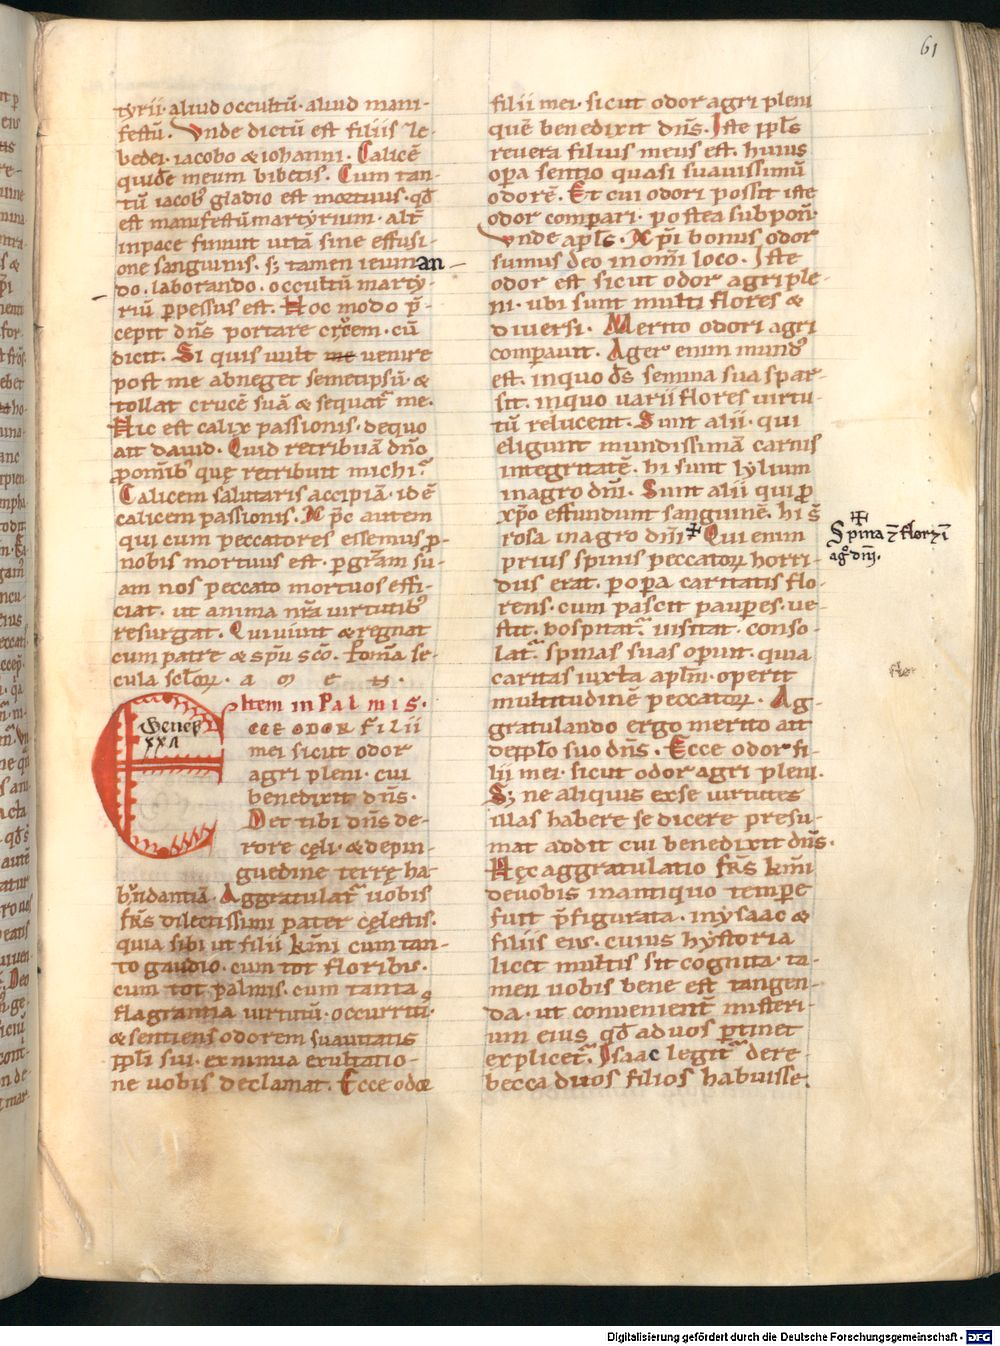 61
tyrii· aliud occultū· aliud mani-
festū. Vnde dictū est filiis ze-
bedei· iacobo & iohanni· Calicē
quidē meum bibetis. Cum tan-
tū iacobꝰ gladio est mortuus· qđ
est manifestū martyrium· alt̄
inpace finiuit uitā sine effusi-
one sanguinis. s; tamen ieiunan
do· laborando· occultū marty-
riū p̄pessus est. Hoc modo p̄-
cepit dn̄s portare crucem· cū
dicit. Si quis uult me uenire
post me abneget semetipsū· &
tollat crucē suā & sequat᷑ me.
Hic est calix passionis· dequo
ait dauid. Quid retribuā dn̄o
p omībꝰ quę retribuit michi?
Calicem salutaris accipiā· id ē
calicem passionis. Xp̄c autem
qui cum peccatores essemus p-
nobis mortuus est· p gr̄am su-
am nos peccato mortuos effi-
ciat· ut anima nr̄a uirtutibꝰ
resurgat. Qui uiuit & regnat
cum patre & sp̄u sc̄o. P om̄a se-
cula sc̄lorꝝ· a m e n·
Item in Palmis·
Geneſ
xxvii
ECCE ODOR FILII
mei sicut odor
agri pleni· cui
benedixit dn̄s·
Det tibi dn̄s de-
rore cęli· & depin-
guedine terrę ha-
bundantiā· Aggratulat᷑ uobis
fr̄s dilectissimi pater cęlestis·
quia sibi ut filii k̄mi cum tan-
to gaudio· cum tot floribus·
cum tot palmis· cum tanta
flagrantia uirtutū· occurritis·
& sentiens odorem suauitatis
pp̄li sui· ex nimia exultatio-
ne uobis declamat. Ecce odor
filii mei· sicut odor agri pleni
quē benedixit dn̄s. Iste pp̄ls
reuera filius meus est· huius
opa sentio quasi suauissimū
odorē. Et cui odori possit iste
odor compari· postea subpoñ·
Vnde apl̄s. Xp̄i bonus odor
sumus deo in om̄i loco. Iste
odor est sicut odor agri ple-
ni· ubi sunt multi flores &
diuersi. Merito odori agri
comparauit. Ager enim mundꝰ
est· inquo d̄s semina sua spar-
sit· inquo uarii flores uirtu-
tū relucent. Sunt alii· qui
eligunt mundissimā carnis
integritatē· hi sunt lylium
in agro dn̄i. Sunt alii qui p
xp̄o effundunt sanguinē· hi s̄
rosa in agro dn̄i· Qui enim
prius spinis peccatorꝝ horri-
dus erat· p opa caritatis flo-
rens· cum pascit paupes· ue-
stit· hospitat᷑· uisitat· conso-
lat᷑· spinas suas opuit· quia
caritas iuxta apl̄m· operit
multitudinē peccatorꝝ. Ag-
gratulando ergo merito ait
de pp̄lo suo dn̄s. Ecce odor fi-
lii mei· sicut odor agri pleni.
S; ne aliquis ex se uirtutes
illas habere se dicere presu-
mat addit cui benedixit dn̄s.
Hęc aggratulatio fr̄s k̄mi
deuobis in antiquo tempore
fuit p̄figurata· in ysaac &
filiis eius· cuius hystoria
licet multis sit cognita· ta-
men uobis bene est tangen-
da· ut conuenient᷑ misteri-
um eius qđ ad uos ptinet
explicet᷑. Isaac legit᷑ de re-
becca duos filios habuisse·
Spina
agͦ dn̄i.
flor
Digitalisierung gefördert durch die Deutsche Forschungsgemeinschaft - DFG